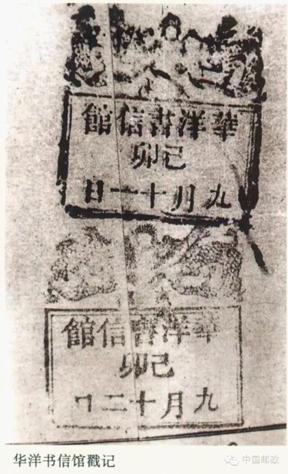 華洋書信館
己卯
九月十一日
華洋書信館
己卯
九月十二日
华洋书信馆戳记
中国邮政